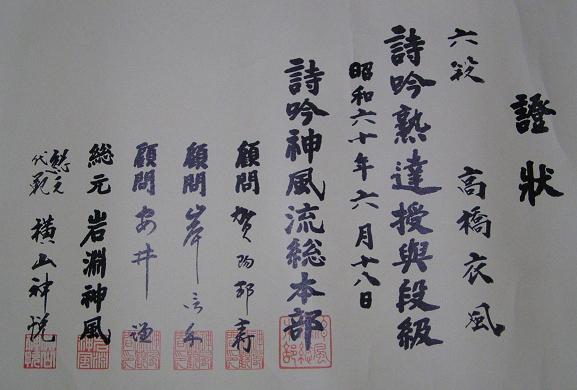 證狀
六段　高橋衣風
詩吟熟達授與段級
昭和六十年六月十八日
詩吟神風流総本部
顧問 賀陽邦寿
顧問 岸信介
顧問 安井謙
総元 岩淵神風
総元代範 横山神悦